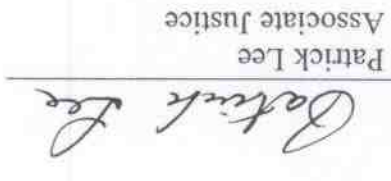 Patrick Lee
Patrick Lee
Associate Justice